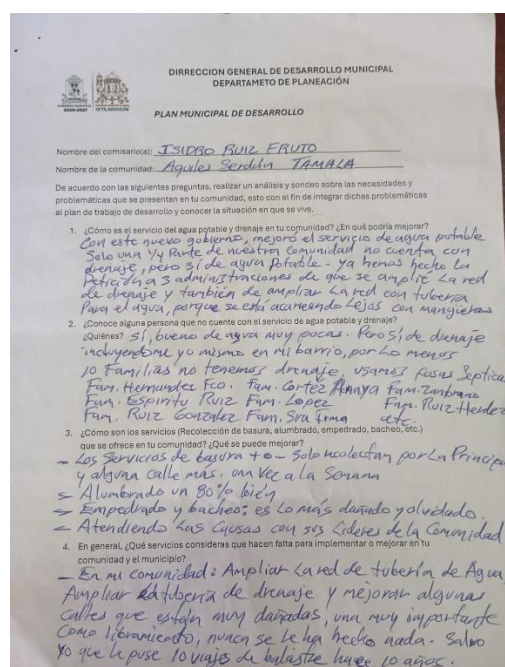 DIRRECCION GENERAL DE DESARROLLO MUNICIPAL
DEPARTAMETO DE PLANEACIÓN
PLAN MUNICIPAL DE DESARROLLO
Nombre del comisario(a): ISIDRO RUIZ FRUTO
Nombre de la comunidad: Aquiles Serdán TAMALA
De acuerdo con las siguientes preguntas, realizar un análisis y sondeo sobre las necesidades y
problemáticas que se presentan en tu comunidad, esto con el fin de integrar dichas problemáticas
al plan de trabajo de desarrollo y conocer la situación en que se vive.
1. ¿Cómo es el servicio del agua potable y drenaje en tu comunidad? ¿En qué podría mejorar?
Con este nuevo gobierno, mejoró el servicio de agua potable
Solo una 1/4 Parte de nuestra Comunidad no cuenta con
drenaje, pero sí de agua Potable - ya hemos hecho La
Petición a 3 administraciones de que se amplie La red
de drenaje y también de ampliar La red con tubería
Para el agua, porque se está acarreando Lejos con mangueras
2. ¿Conoce alguna persona que no cuente con el servicio de agua potable y drenaje?
¿Quiénes? Sí, bueno de agua muy pocas. Pero Sí, de drenaje
incluyendome yo mismo en mi barrio, por Lo menos
10 Familias no tenemos drenaje. usamos fosas Septica
Fam. Hernandez Fco. Fam. Cortéz Anaya Fam. Zambrano
Fam. Espiritu Ruiz Fam. Lopez Fam. Ruiz Herdez
Fam. Ruiz Gonzalez Fam. Sra Irma etc.
3. ¿Cómo son los servicios (Recolección de basura, alumbrado, empedrado, bacheo, etc.)
que se ofrece en tu comunidad? ¿Qué se puede mejorar?
- Los Servicios de basura + o - Solo recolectan por La Princip
y alguna calle más. una vez a la Semana
- Alumbrado un 80% bien
- Empedrado y bacheo: es Lo más dañado y olvidado.
- Atendiendo Las Causas con sus Lideres de la Comunidad
4. En general, ¿Qué servicios consideras que hacen falta para implementar o mejorar en tu
comunidad y el municipio?
- En mi comunidad: Ampliar La red de tubería de Agua
Ampliar tubería de drenaje y mejorar algunas
calles que están muy dañadas, una muy importante
Como libramiento, nunca se le ha hecho nada. Salvo
yo que le puse 10 viajes de balastre hace 10 años.